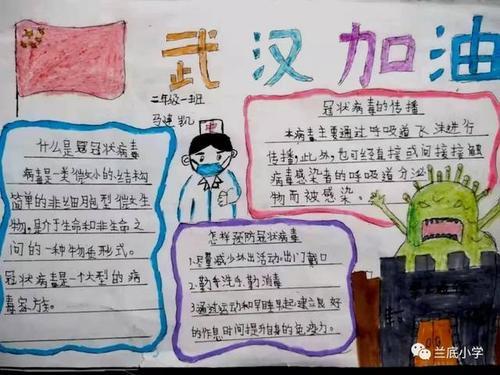 武汉加油
二年级一班
马建凯
什么是冠状病毒
病毒是一类微小的、结构
简单的非细胞型微生
物,是介于生命和非生命之
间的一种物质形式。
冠状病毒是一个大型的病
毒家族。
冠状病毒的传播
本病毒主要通过呼吸道飞沫进行
传播,此外,也可经直接或间接接触
病毒感染者的呼吸道分泌
物而被感染。
怎样预防冠状病毒
1.尽量减少外出活动。出门戴口
2.勤手洗手,勤消毒
3通过运动和早睡早起建立良好
的作息时间提升自身的免疫力。
兰底小学